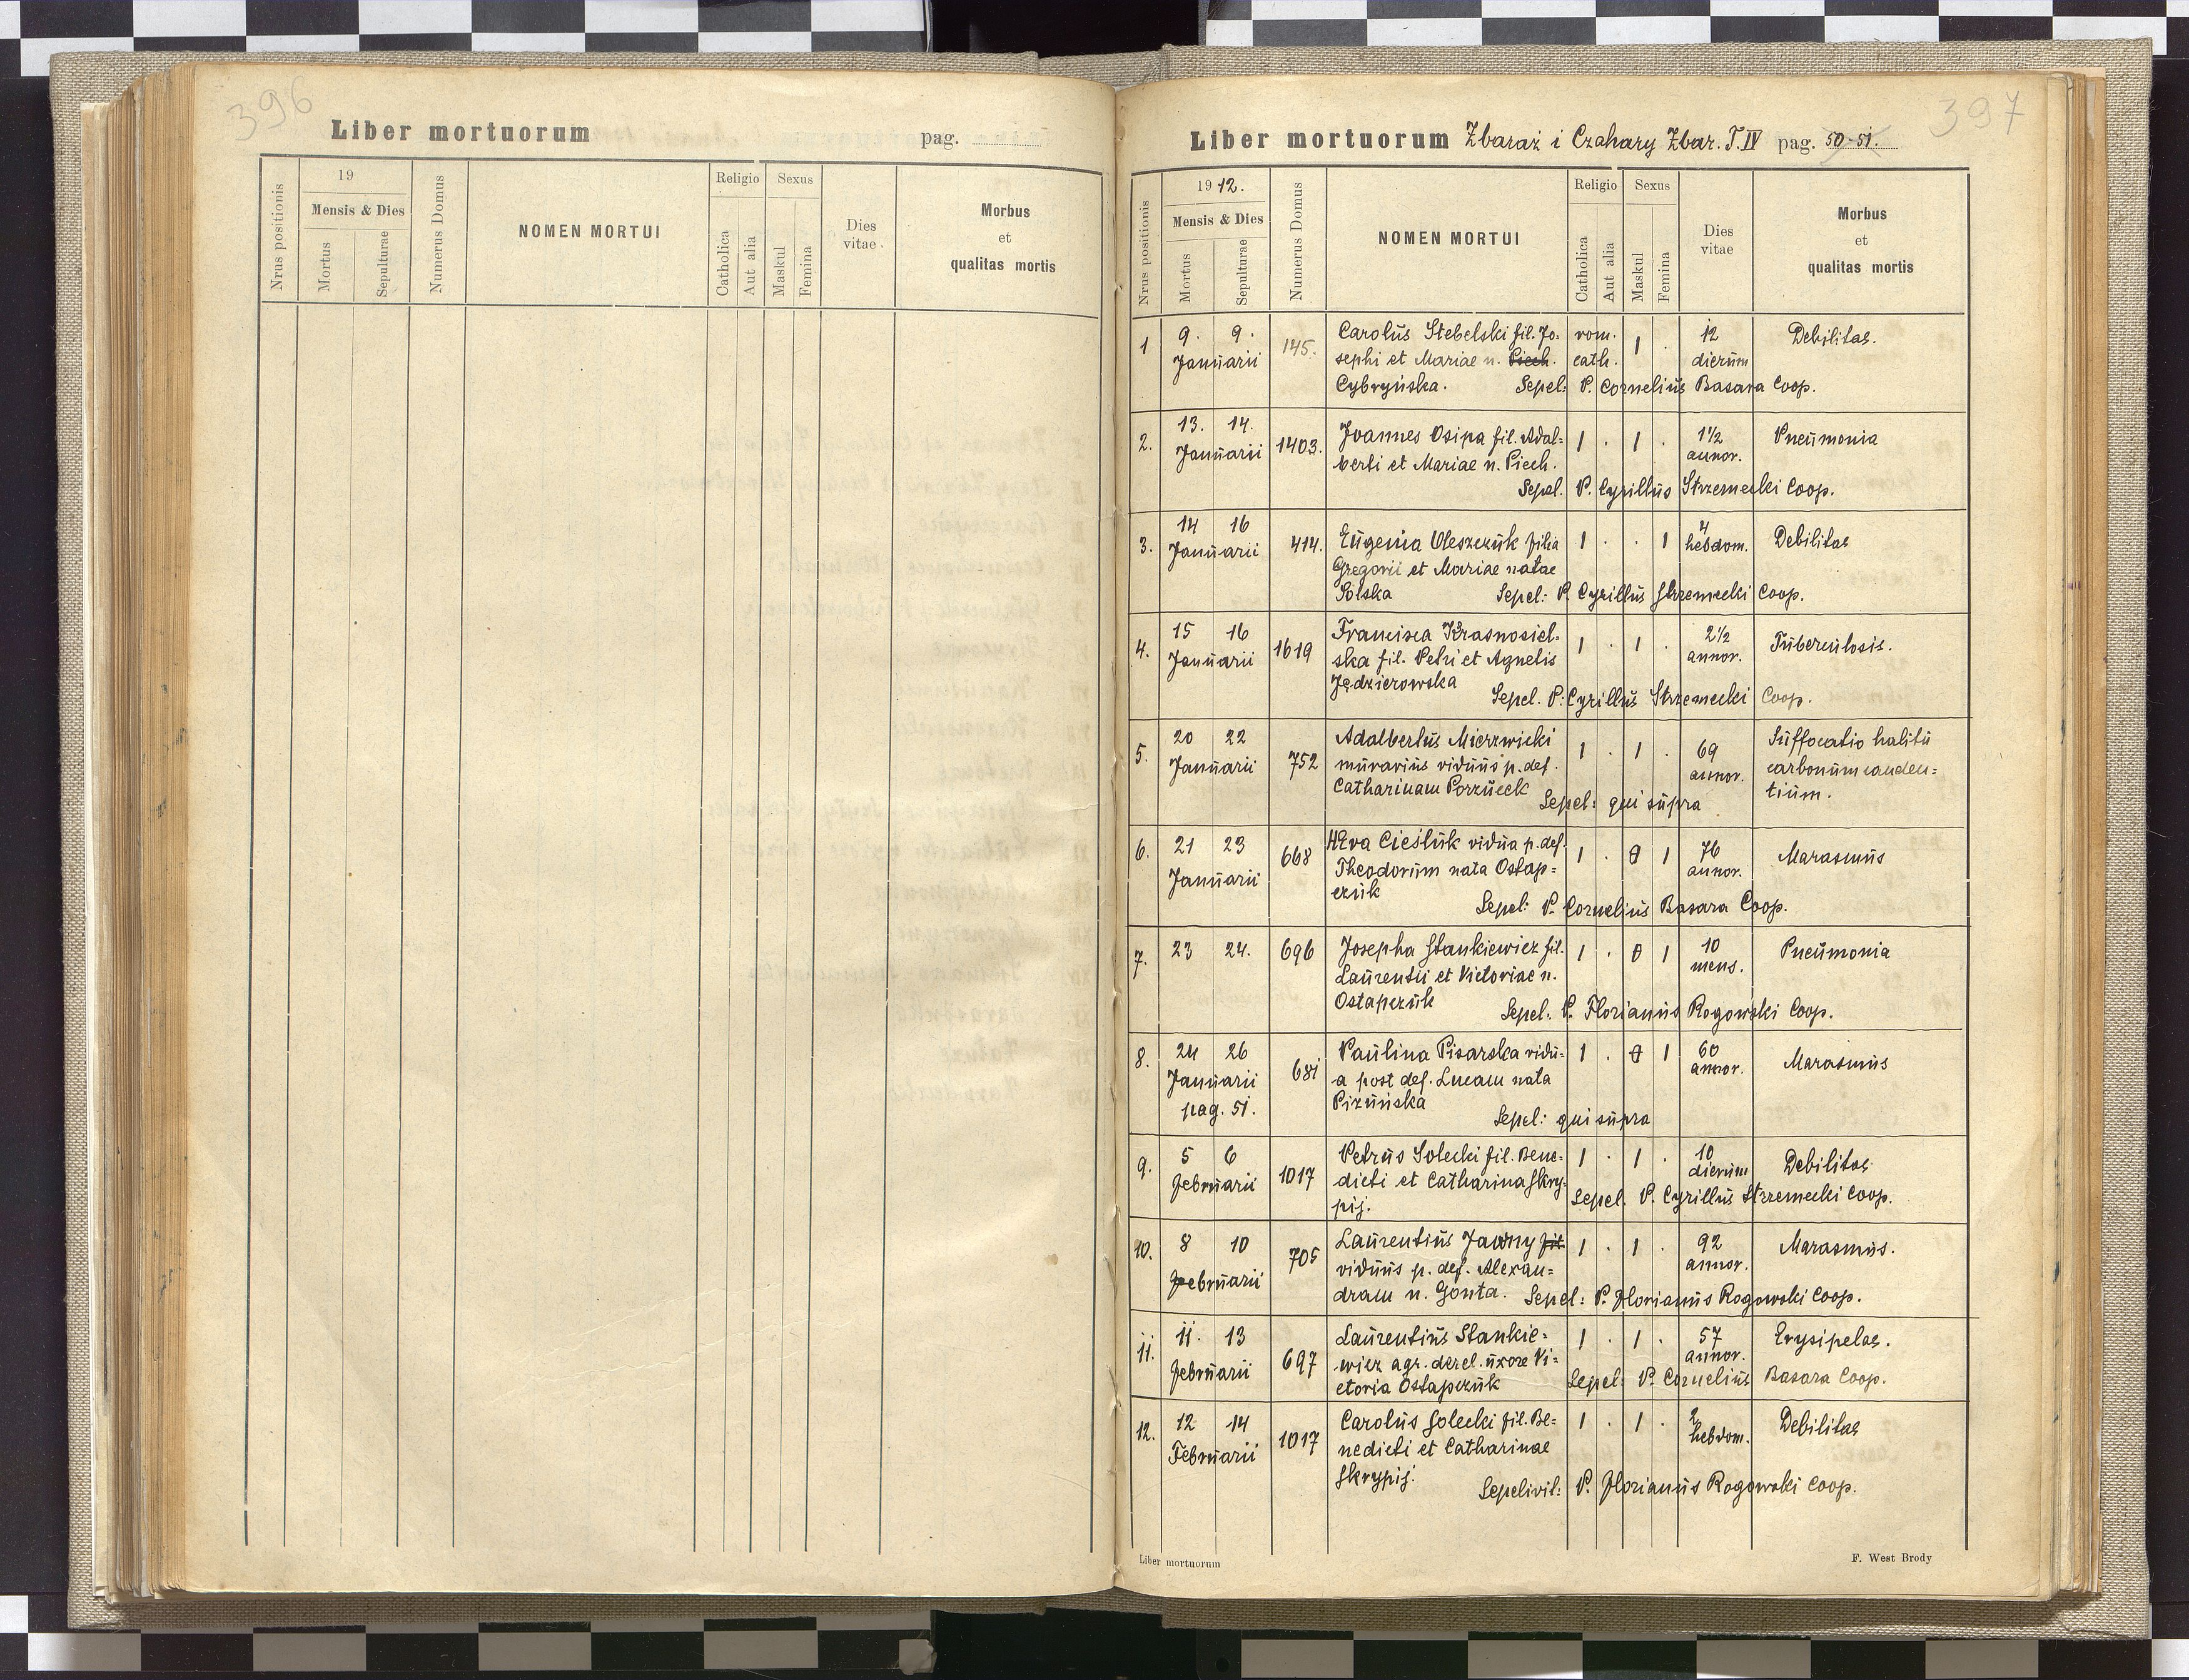 396
Liber mortuorum pag.
Nrus positionis
19
Mensis & Dies
Mortus
Sepulturae
Numerus Domus
NOMEN MORTUI
Religio
Catholica
Aut alia
Sexus
Maskul
Femina
Dies
vitae
Morbus
et
qualitas mortis
397
Liber mortuorum Zbaraż i Czahary Zbar. T. IV pag. 50-51.
Nrus positionis
1912.
Mensis & Dies
Mortus
Sepulturae
Numerus Domus
NOMEN MORTUI
Religio
Catholica
Aut alia
Sexus
Maskul
Femina
Dies
vitae
Morbus
et
qualitas mortis
1 9. 9. 145. Carolus Stebelski fil. Jo- rom. 1 . 12 Debilitas.
Januarii sephi et Mariae n. Piech. cath. dierum
Cybryńska. Sepel: P. Cornelius Basara Coop.
2. 13. 14. 1403. Joannes Osipa fil. Adal= 1 . 1 . 1½ Pneumonia
Januarii berti et Mariae n. Piech. annor.
Sepel. P. Cyrillus Strzemecki Coop.
3. 14 16 414. Eugenia Oleszczuk filia 1 . . 1 4 hebdom. Debilitas
Januarii Gregorii et Mariae natae
Solska Sepel: P. Cyrillus Strzemecki Coop.
4. 15 16 1619 Francisca Krasnosiel- 1 . 1 . 2½ Tuberculosis.
Januarii ska fil. Petri et Agnetis annor.
Jędzierowska Sepel. P. Cyrillus Strzemecki Coop.
5. 20 22 752 Adalbertus Mierzwicki 1 . 1 . 69 Suffocatio halitu
Januarii murarius viduus p. def. annor. carbonum canden=
Catharinam Porzucek Sepel: qui supra tium.
6. 21 23 668 Eva Cieśluk vidua p. def. 1 . 0 1 76 Marasmus
Januarii Theodorum nata Ostap= annor.
czuk Sepel: P. Cornelius Basara Coop.
7. 23 24. 696 Josepha Stankiewicz fil. 1 . 0 1 10 Pneumonia
Laurentii et Victoriae n. mens.
Ostapczuk Sepel: P. Florianus Rogowski Coop.
8. 24 26 681 Paulina Pisarska vidu- 1 . 0 1 60 Marasmus
Januarii a post def. Lucam nata annor.
pag. 51. Pizuńska Sepel: qui supra
9. 5 6 1017 Petrus Solecki fil. Bene- 1 . 1 . 10 Debilitas
Februarii dicti et Catharina Skry- dierum
pij. Sepel. P. Cyrillus Strzemecki Coop.
10. 8 10 705 Laurentius Jawny fil. 1 . 1 . 92 Marasmus.
Februarii viduus p. def. Alexan= annor.
dram n. Gonta. Sepel: P. Florianus Rogowski Coop.
11. 11. 13 697 Laurentius Stankie- 1 . 1 . 57 Erysipelas.
Februarii wicz agr. derel. uxore Vi= annor.
ctoria Ostapczuk Sepel: P. Cornelius Basara Coop.
12. 12 14 1017 Carolus Solecki fil. Be= 1 . 1 . 2 hebdom. Debilitas
Februarii nedicti et Catharinae
Skrypij. Sepelivit: P. Florianus Rogowski Coop.
Liber mortuorum F. West Brody